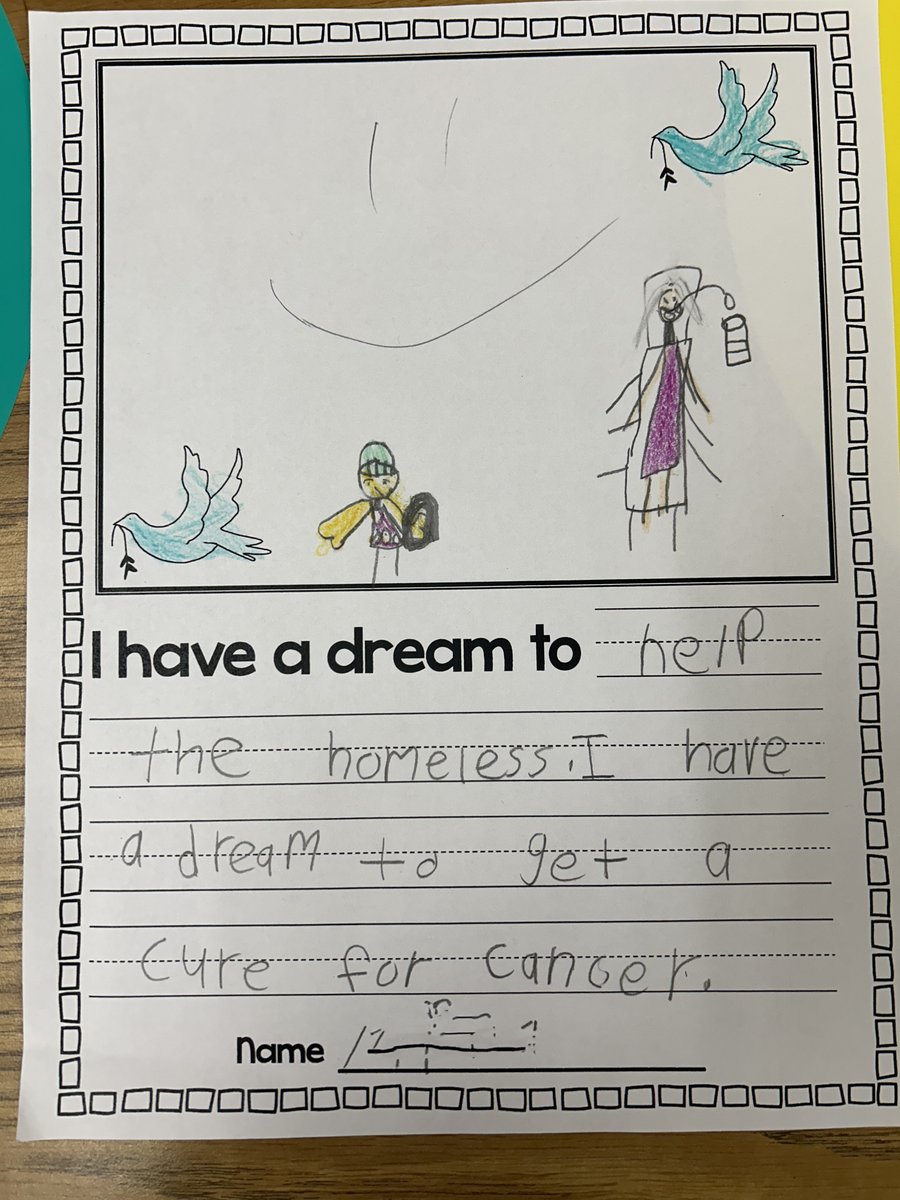 I have a dream to help
the homeless. I have
a dream to get a
cure for cancer.
Name